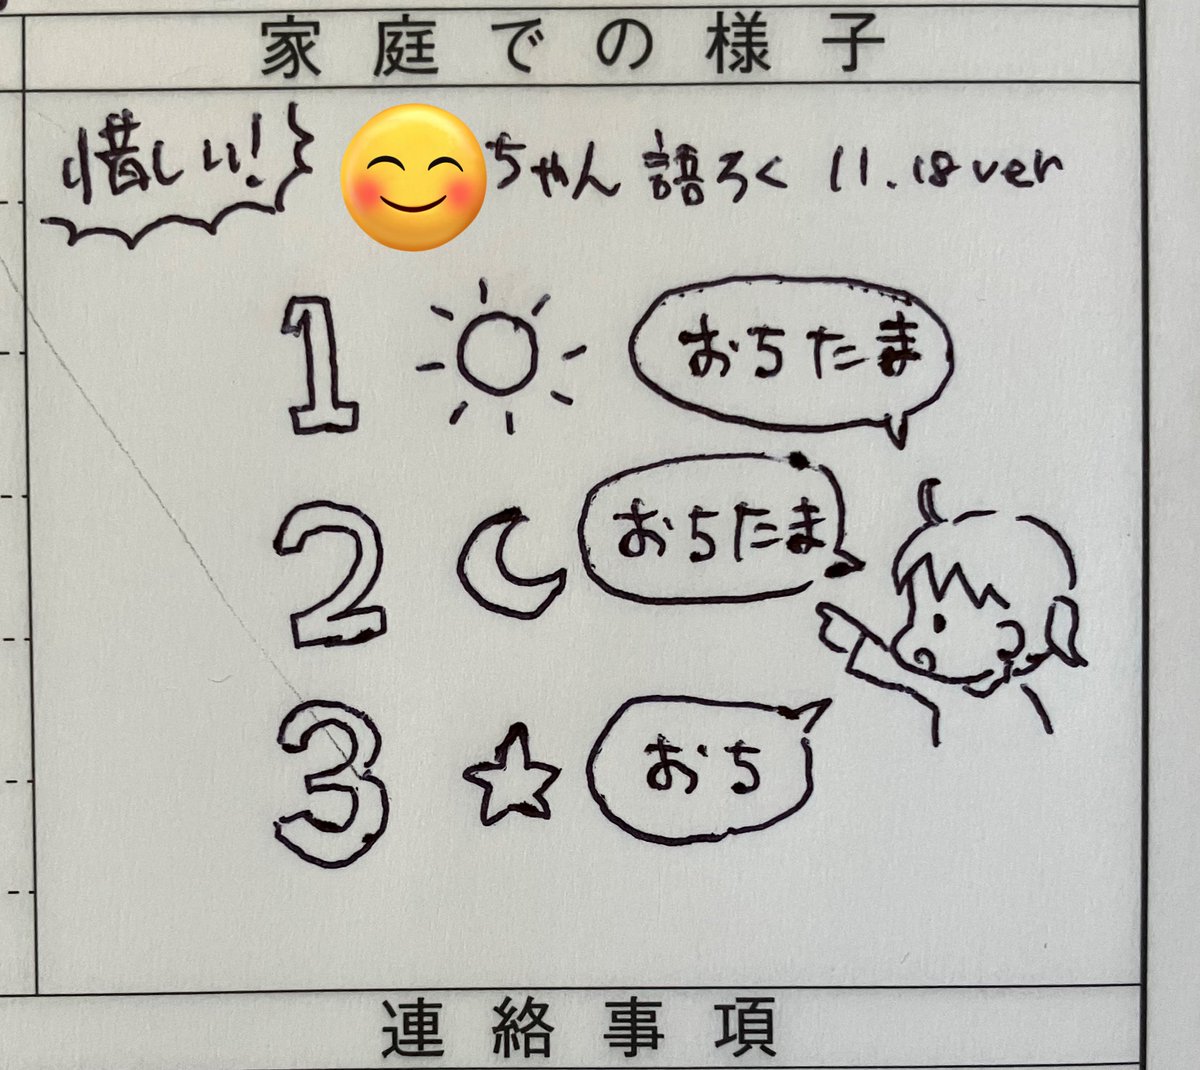 家庭での様子
惜しい! ちゃん 語ろく 11.18ver
1 おちたま
2 おちたま
3 おち
連絡事項